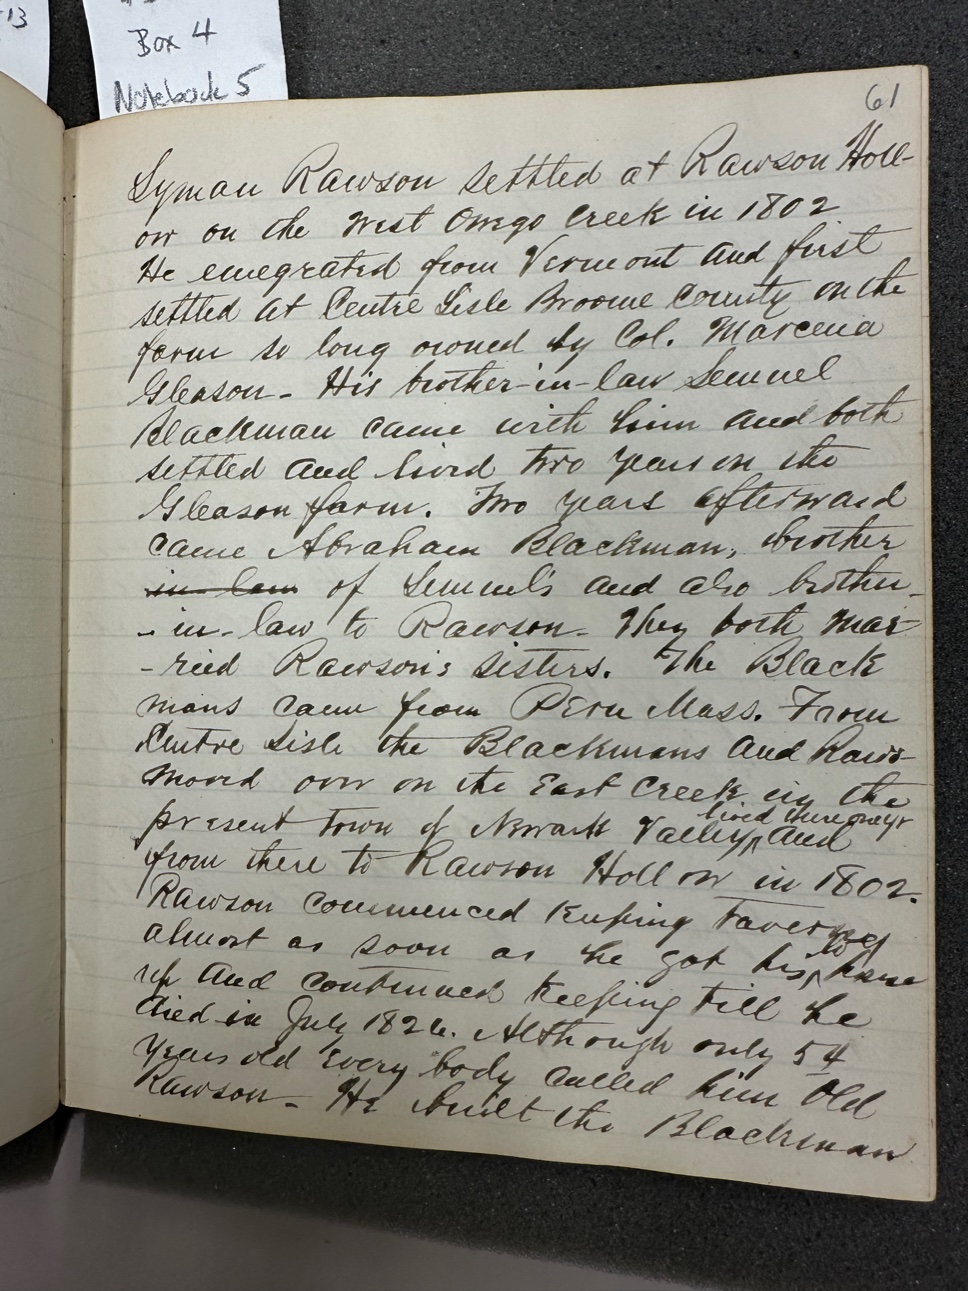 13
Box 4
Notebook 5
61
Lyman Rawson settled at Rawson Holl-
ow on the West Owego Creek in 1802
He emegrated from Vermont and first
settled at Centre Lisle Broome County on the
farm so long owned by Col. Marcena
Gleason - His brother-in-law Lemuel
Blackman came with him and both
settled and lived two years on the
Gleason farm. Two years afterward
came Abraham Blackman, brother
in law of Lemuel's and also brother-
- in - law to Rawson - They both mar-
-ried Rawson's sisters. The Black
mans came from Peru Mass. From
Centre Lisle the Blackmans and Raws-
moved over on the East Creek in the
lived there one yr
present town of Newark Valley, and
from there to Rawson Hollow in 1802.
Rawson commenced Keeping tavern
almost as soon as he got his log house
up and continued Keeping till he
died in July 1826. Although only 54
years old Every body called him Old
Rawson - He built the Blackman